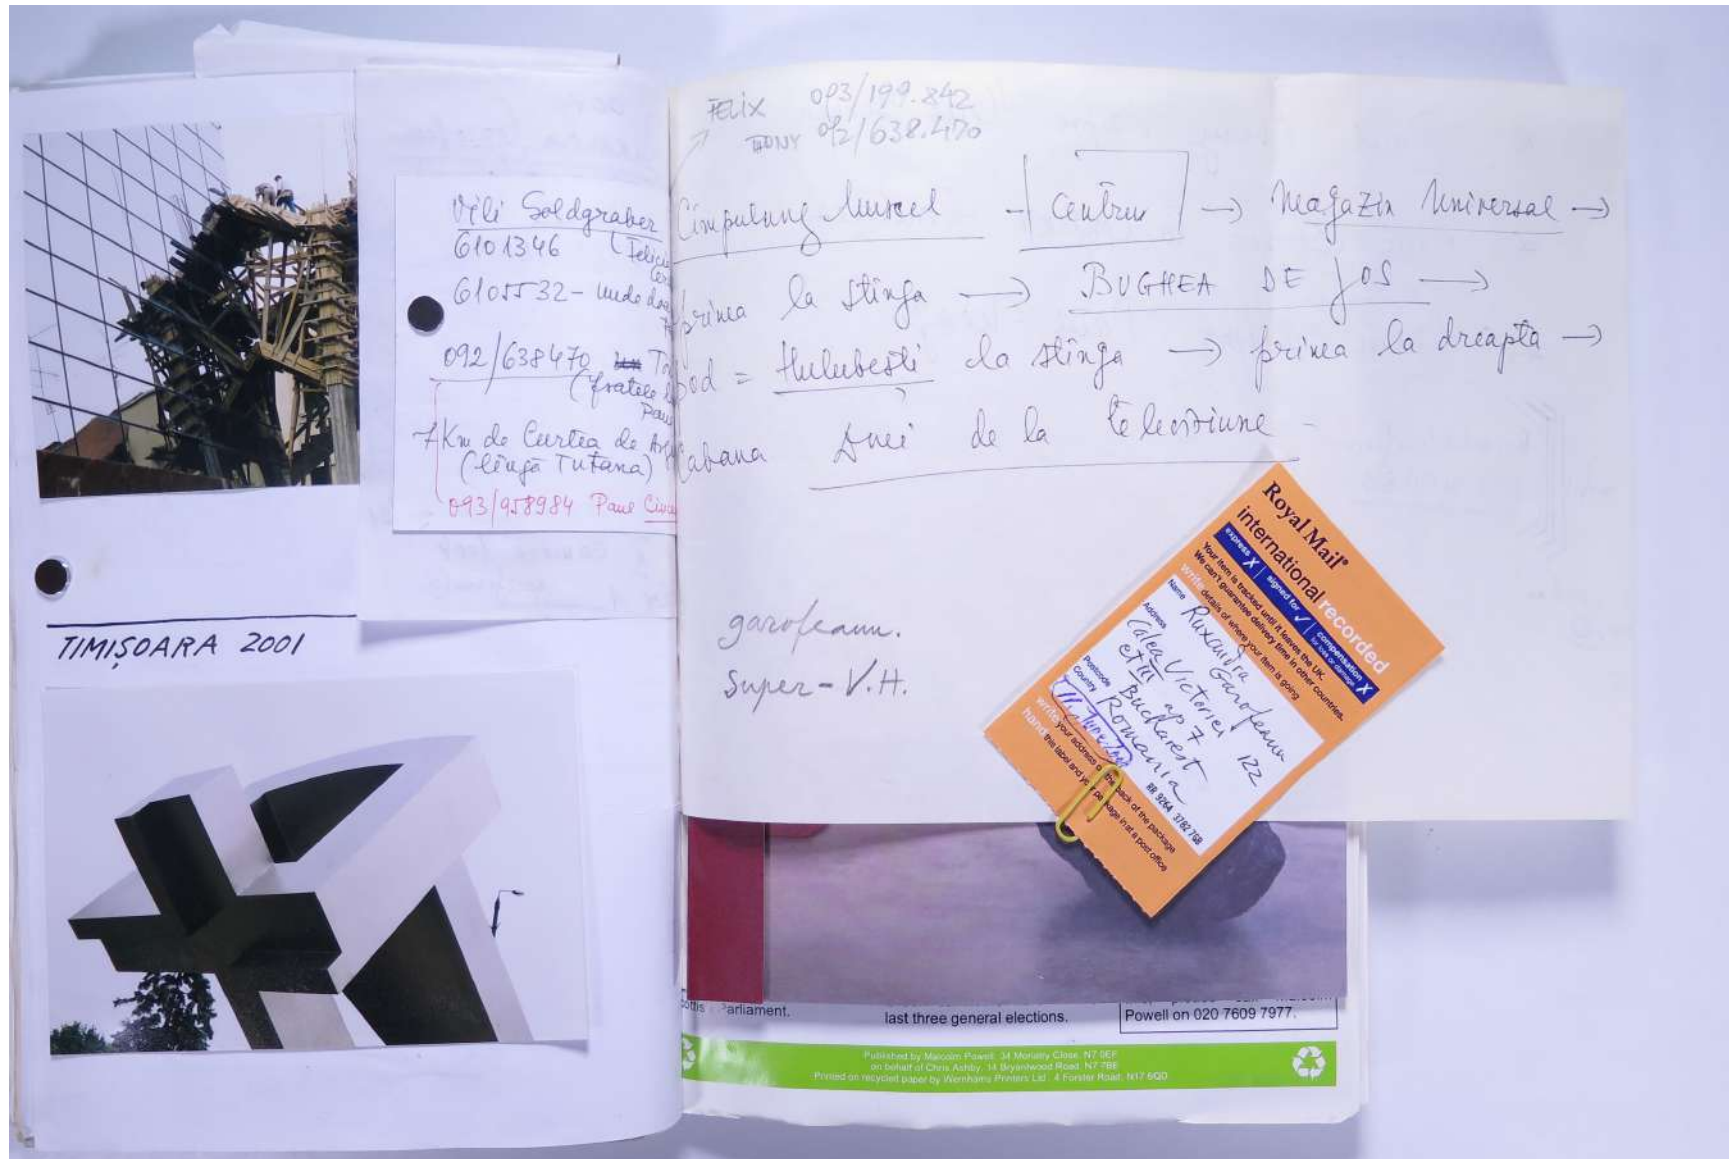 FELIX 093/199.842
TONY 092/638.470
Vili Goldgraber
6101346 (Felicia
6105532 - unde
092/638470 To
(fratele
Paul
7 Km de Curtea de Arg
(lîngă Tutana)
093/958984 Paul
Cîmpulung Muscel - Centru → Magazin Universal →
prima la stînga → BUGHEA DE JOS →
pod = Hulubești la stînga → prima la dreapta →
Cabana de la televiziune -
garofeanu.
super-V.H.
TIMIȘOARA 2001
Royal Mail®
international recorded
express X | signed for ✓ | compensation for loss or damage X
Your item is tracked until it leaves the UK.
We can't guarantee delivery time in other countries.
write details of where your item is going
Name Ruxandra Garofeanu
Address Calea Victoriei 122
et III ap 7
Postcode Bucharest
Country Romania
RR 9264 3782 7GB
write your address on the back of the package
hand this label and your package in at a post office
Parliament.
last three general elections.
Powell on 020 7609 7977.
Published by Malcolm Powell, 34 Close, N7
on behalf of Chris Ashby, 14 Bryantwood Road, N7 7BE
Printed on recycled paper by Wernhams Printers Ltd, 4 Forster Road, N17 6QD